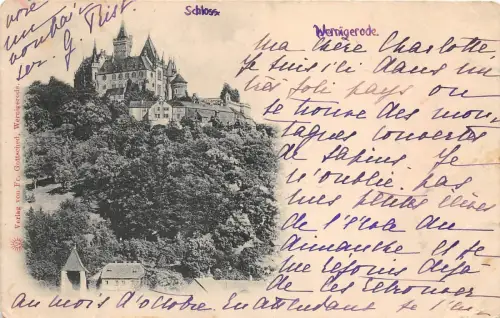 Schloss.
Wernigerode.
Verlag von Fr. Gottsched, Wernigerode.
Ma chère Charlotte
Je suis ici dans un
très joli pays ou
se trouve des mon-
tagnes couvertes
de sapins. Je
n'oublie pas
mes petites élèves
de l'école du
dimanche et je
me réjouis déjà
de les retrouver
au mois d'octobre. En attendant je
un